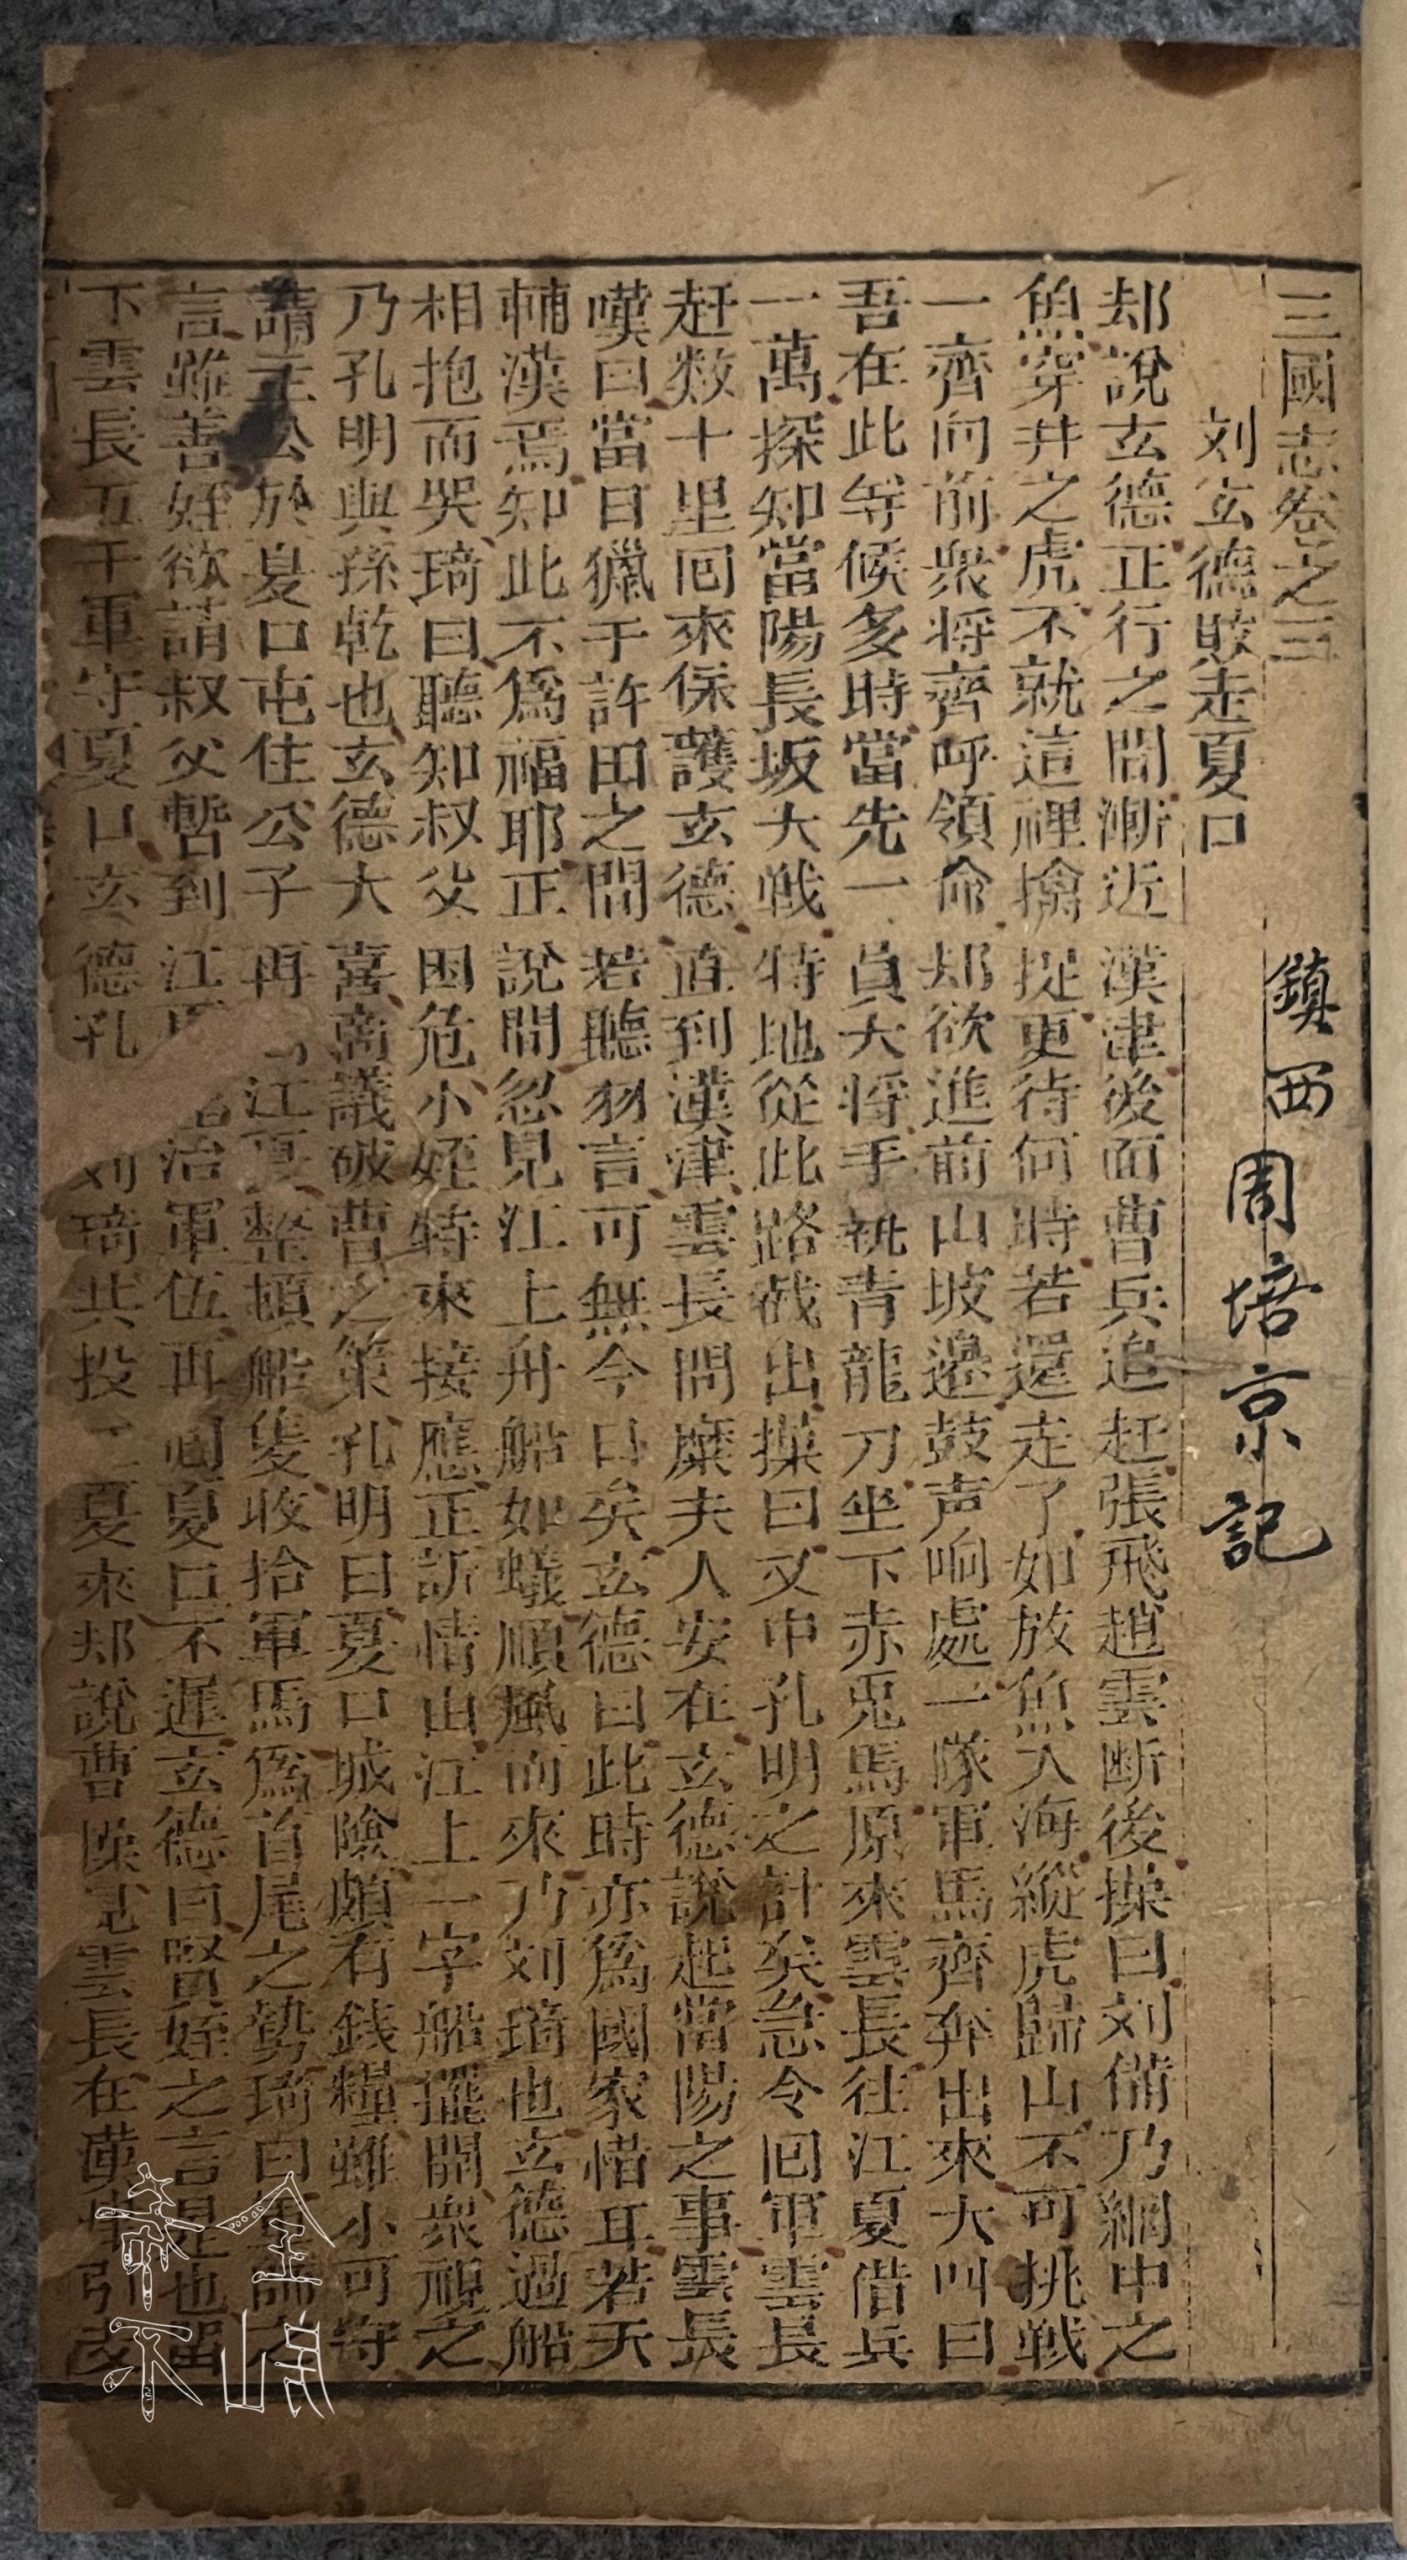 三國志卷之三
刘玄德敗走夏口
鎮西
周培京記
却說玄德正行之間漸近漢津後面曹兵追赶張飛趙雲断後操曰刘俻乃網中之
魚穽井之虎不就這裡擒捉更待何時若還走了如放魚入海縱虎歸山不可挑戦
一齊向前衆将齊呼領命却欲進前山坡邉鼓声响處一隊軍馬齊奔出來大叫曰
吾在此等候多時當先一員大将手執青龍刀坐下赤兎馬原來雲長往江夏借兵
一萬探知當陽長坂大戦特地從此路截出操曰又中孔明之計矣急令囘軍雲長
赶数十里囘來保護玄德直到漢津雲長問糜夫人安在玄德說起當陽之事雲長
嘆曰當日獵于許田之間若聽羽言可無今日矣玄德曰此時亦爲國家惜耳若天
輔漢焉知此不爲福耶正說間忽見江上舟船如蟻順風而來乃刘琦也玄德過船
相抱而哭琦曰聽知叔父困危小姪特來接應正訴情由江上一字船擺開衆視之
乃孔明與孫乾也玄德大喜商議破曹之策孔明曰夏口城險頗有錢糧雖小可守
請主公於夏口屯住公子再江夏整頓船隻收拾軍馬爲首尾之勢琦曰軍師之
言雖善姪欲請叔父暫到江治軍伍再囘夏口不遲玄德曰賢姪之言是也留
下雲長五千軍守夏口玄德孔刘琦共投江夏來却說曹操見雲長在漢津引
全帝
不山居